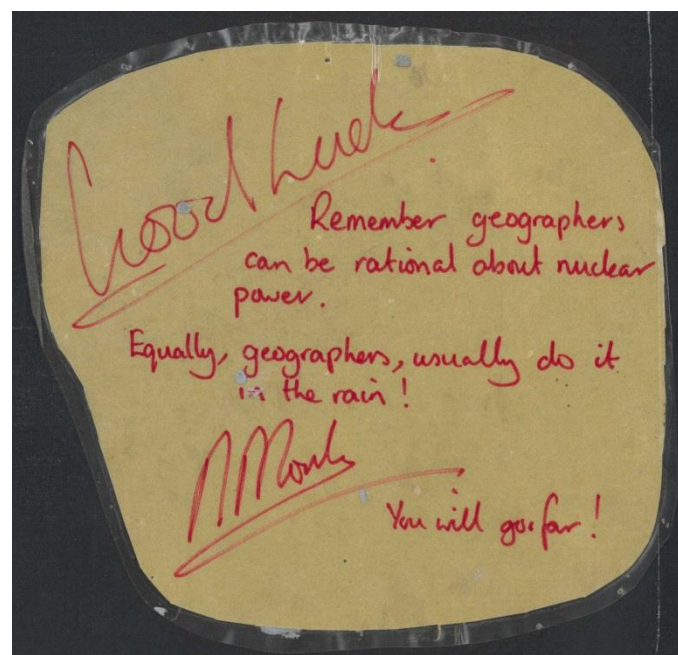 Good Luck
Remember geographers
can be rational about nuclear
power.
Equally, geographers, usually do it
in the rain!
You will go far!